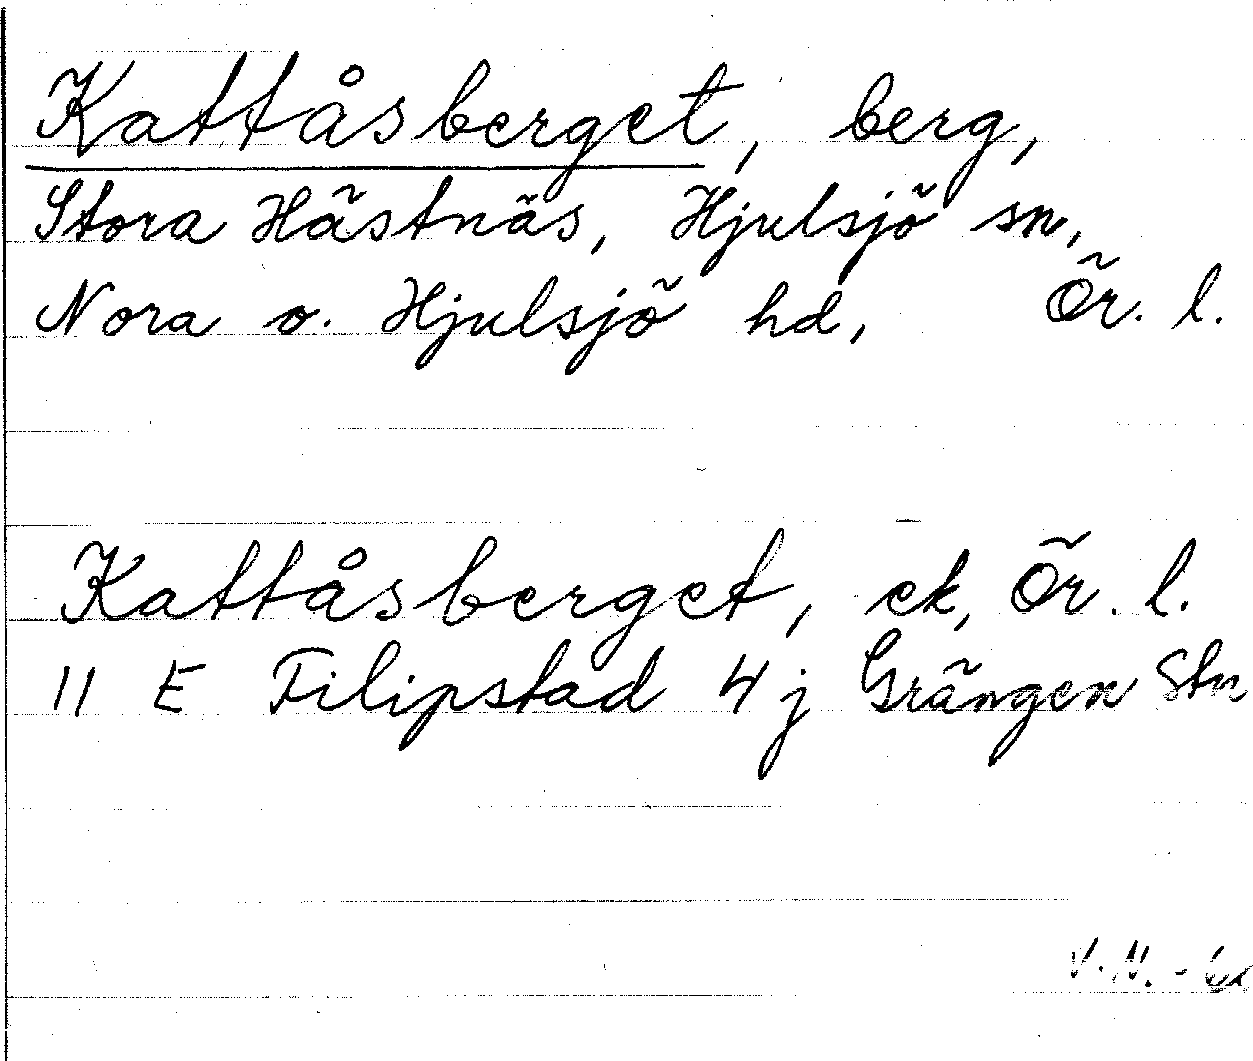 Kattåsberget, berg,
Stora Hästnäs, Hjulsjö sn,
Nora o. Hjulsjö hd, Ör. l.
Kattåsberget, ek, Ör. l.
11 E Filipstad 4 j Grängen Stn
V. N. -